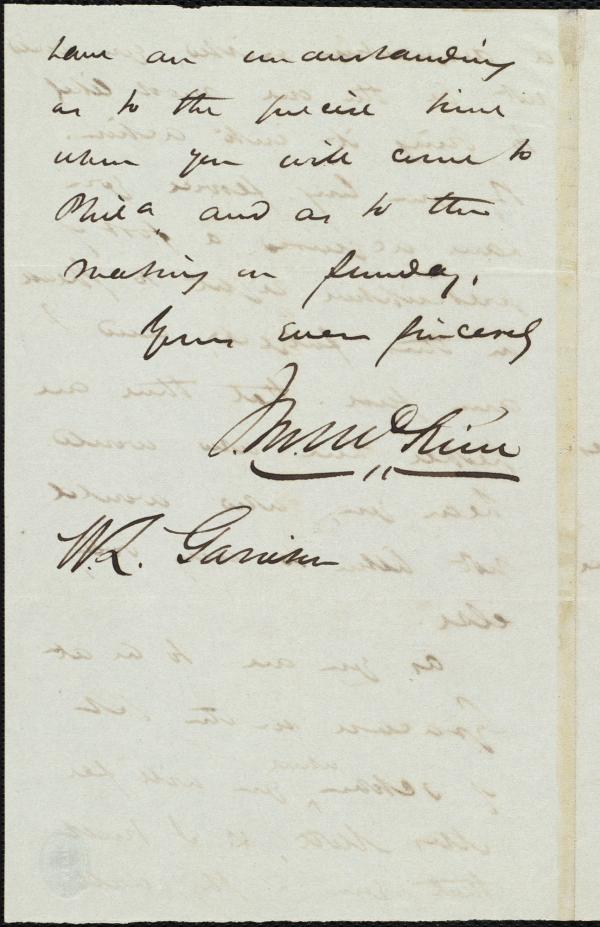 have an understanding
as to the precise time
when you will come to
Phila. and as to the
meeting on Sunday.
Yours ever sincerely
J. M. McKim
W. L. Garrison